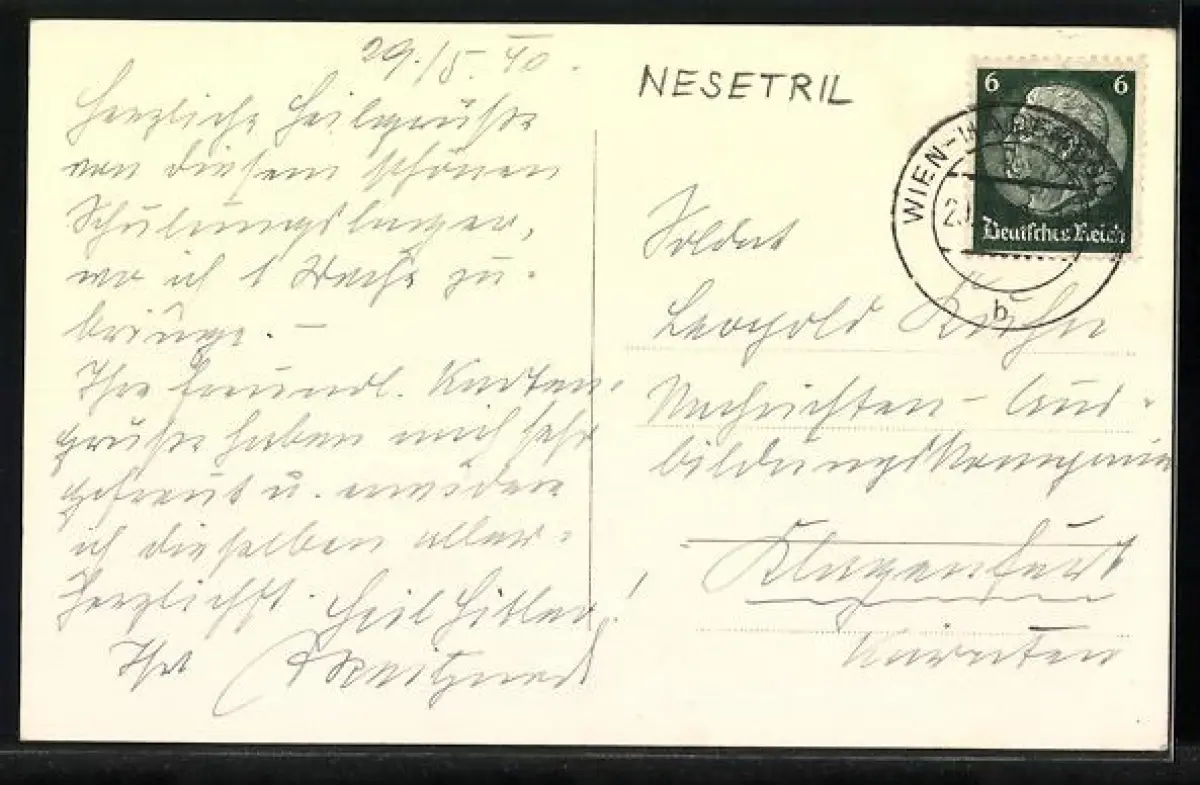 29./5. 40.
Herzliche Heilsgrüße
von diesem schönen
Schulungslager,
wo ich 1 Woche zu-
bringe. –
Ihre freundl. Karten-
grüße haben mich sehr
gefreut u. erwidere
ich dieselben aller-
herzlichst. Heil Hitler!
Ihr
NESETRIL
6 6
Deutsches Reich
WIEN-
b
Soldat
Leopold Kuhn
Nachrichten-Aus-
bildungskompanie
Klagenfurt
Kärnten